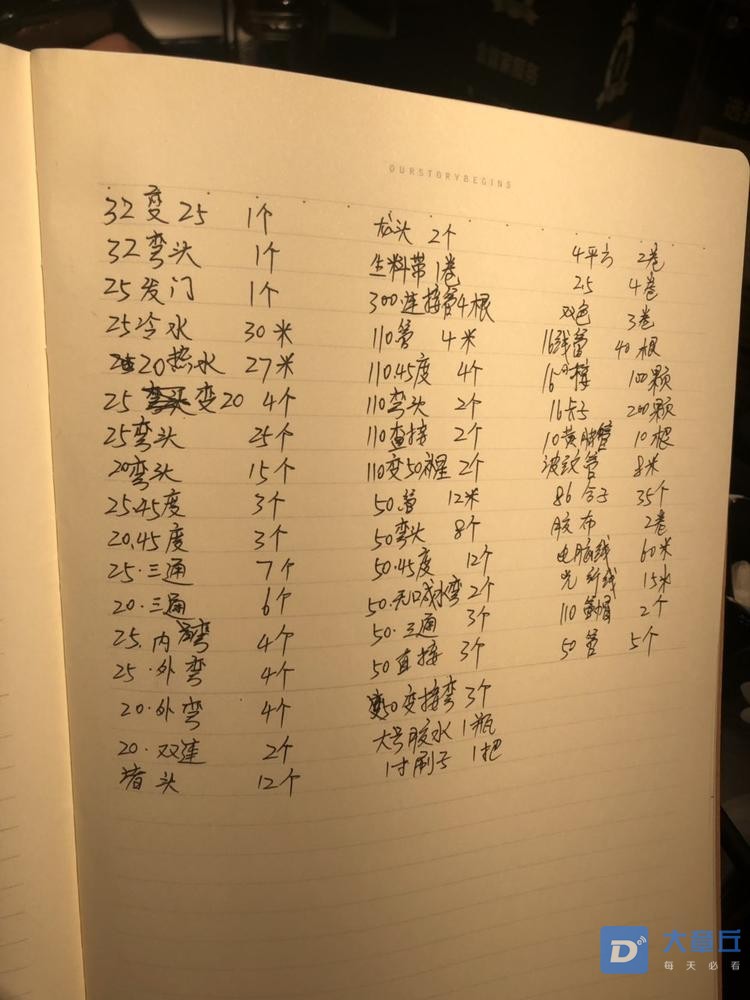 OURSTORYBEGINS
32变25 1个
32弯头 1个
25发门 1个
25冷水 30米
20热水 27米
25 变20 4个
25弯头 25个
20弯头 15个
25.45度 3个
20.45度 3个
25.三通 7个
20.三通 6个
25.内弯 4个
25.外弯 4个
20.外弯 4个
20.双连 2个
堵头 12个
龙头 2个
生料带 1卷
300.连接管4根
110管 4米
110.45度 4个
110弯头 2个
110直接 2个
110变50 2个
50.管 12米
50弯头 8个
50.45度 12个
50. 水弯 2个
50.三通 3个
50直接 3个
50变接弯 3个
大号胶水 1瓶
1寸刷子 1把
4平方 2卷
2.5 4卷
双色 3卷
16线管 40根
16 接 100颗
16卡子 200颗
10黄腊管 10根
波纹管 8米
86合子 35个
胶布 2卷
电脑线 60米
光纤线 15米
110管帽 2个
50管 5个
大章丘
每天必看